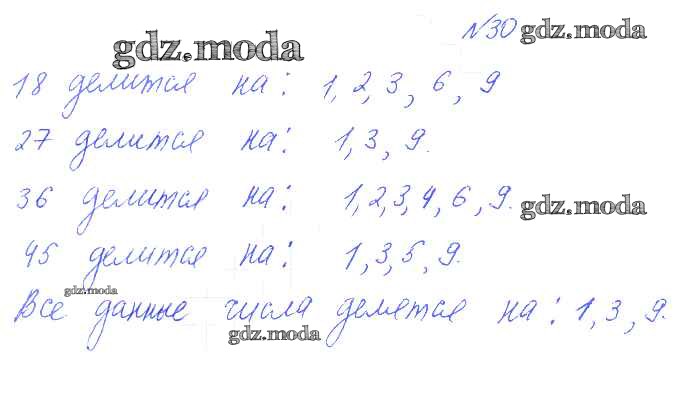 №30 gdz.moda
gdz.moda
18 делится на: 1, 2, 3, 6, 9
27 делится на: 1, 3, 9.
36 делится на: 1, 2, 3, 4, 6, 9. gdz.moda
45 делится на: 1, 3, 5, 9.
gdz.moda
Все данные числа делятся на: 1, 3, 9.
gdz.moda